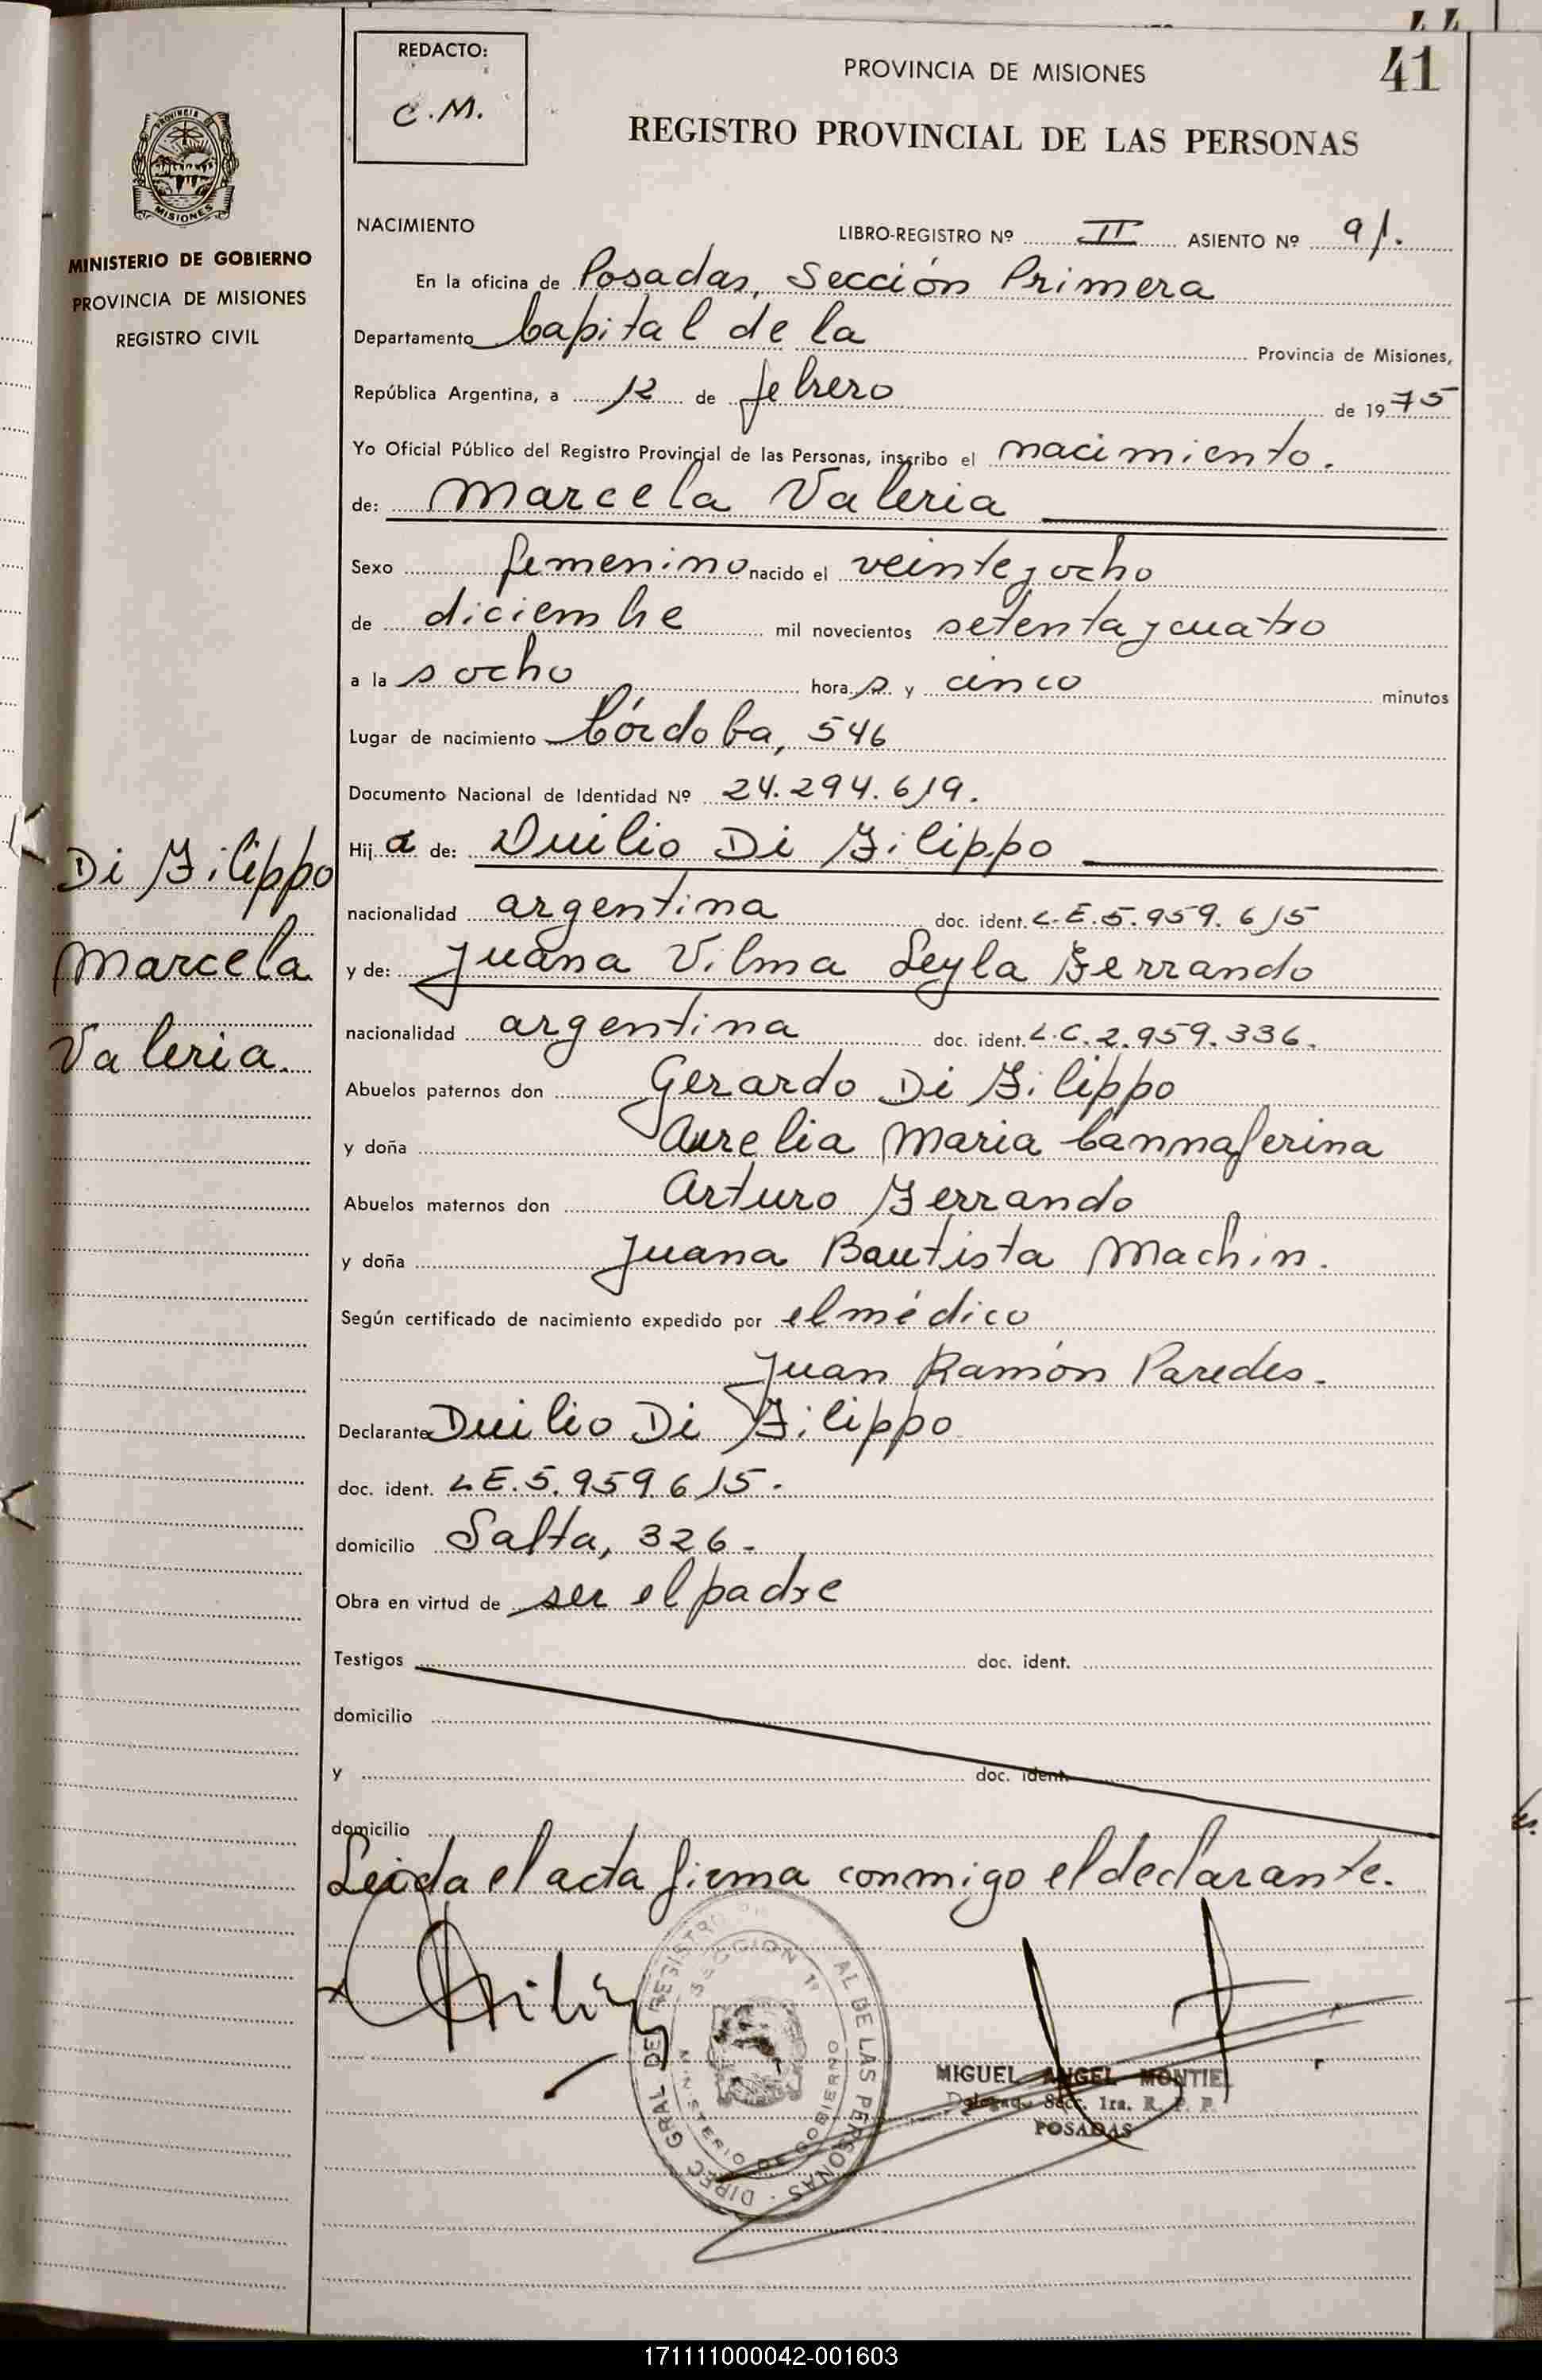 44
41
REDACTO:
C.M.
PROVINCIA DE MISIONES
REGISTRO PROVINCIAL DE LAS PERSONAS
PROVINCIA DE
MISIONES
MINISTERIO DE GOBIERNO
PROVINCIA DE MISIONES
REGISTRO CIVIL
NACIMIENTO
LIBRO-REGISTRO Nº II ASIENTO Nº 91.
En la oficina de Posadas, Sección Primera
Departamento Capital de la Provincia de Misiones,
República Argentina, a 12 de febrero de 1975
Yo Oficial Público del Registro Provincial de las Personas, inscribo el nacimiento.
de: Marcela Valeria
Sexo femenino nacido el veinte y ocho
de diciembre mil novecientos setenta y cuatro
a la s ocho hora s y cinco minutos
Lugar de nacimiento Córdoba, 546
Documento Nacional de Identidad Nº 24.294.619.
Hij a de: Duilio Di Filippo
nacionalidad argentina doc. ident. L.E.5.959.615
y de: Juana Vilma Leyla Ferrando
nacionalidad argentina doc. ident. L.C.2.959.336.
Abuelos paternos don Gerardo Di Filippo
y doña Aurelia Maria Cannaferina
Abuelos maternos don Arturo Ferrando
y doña Juana Bautista Machin.
Según certificado de nacimiento expedido por el médico
Juan Ramón Paredes.
Declarante Duilio Di Filippo
doc. ident. L.E.5.959.615.
domicilio Salta, 326.
Obra en virtud de ser el padre
Testigos doc. ident.
domicilio
y doc. ident.
domicilio
Leida el acta firma conmigo el declarante.
Di Filippo
Marcela
Valeria.
DIREC GRAL DEL REGISTRO AL DE LAS PERSONAS
SECCION 1ª
MINISTERIO DE GOBIERNO
MIGUEL ANGEL MONTIEL
Delegado Secc. 1ra. R. P. P.
POSADAS
171111000042-001603